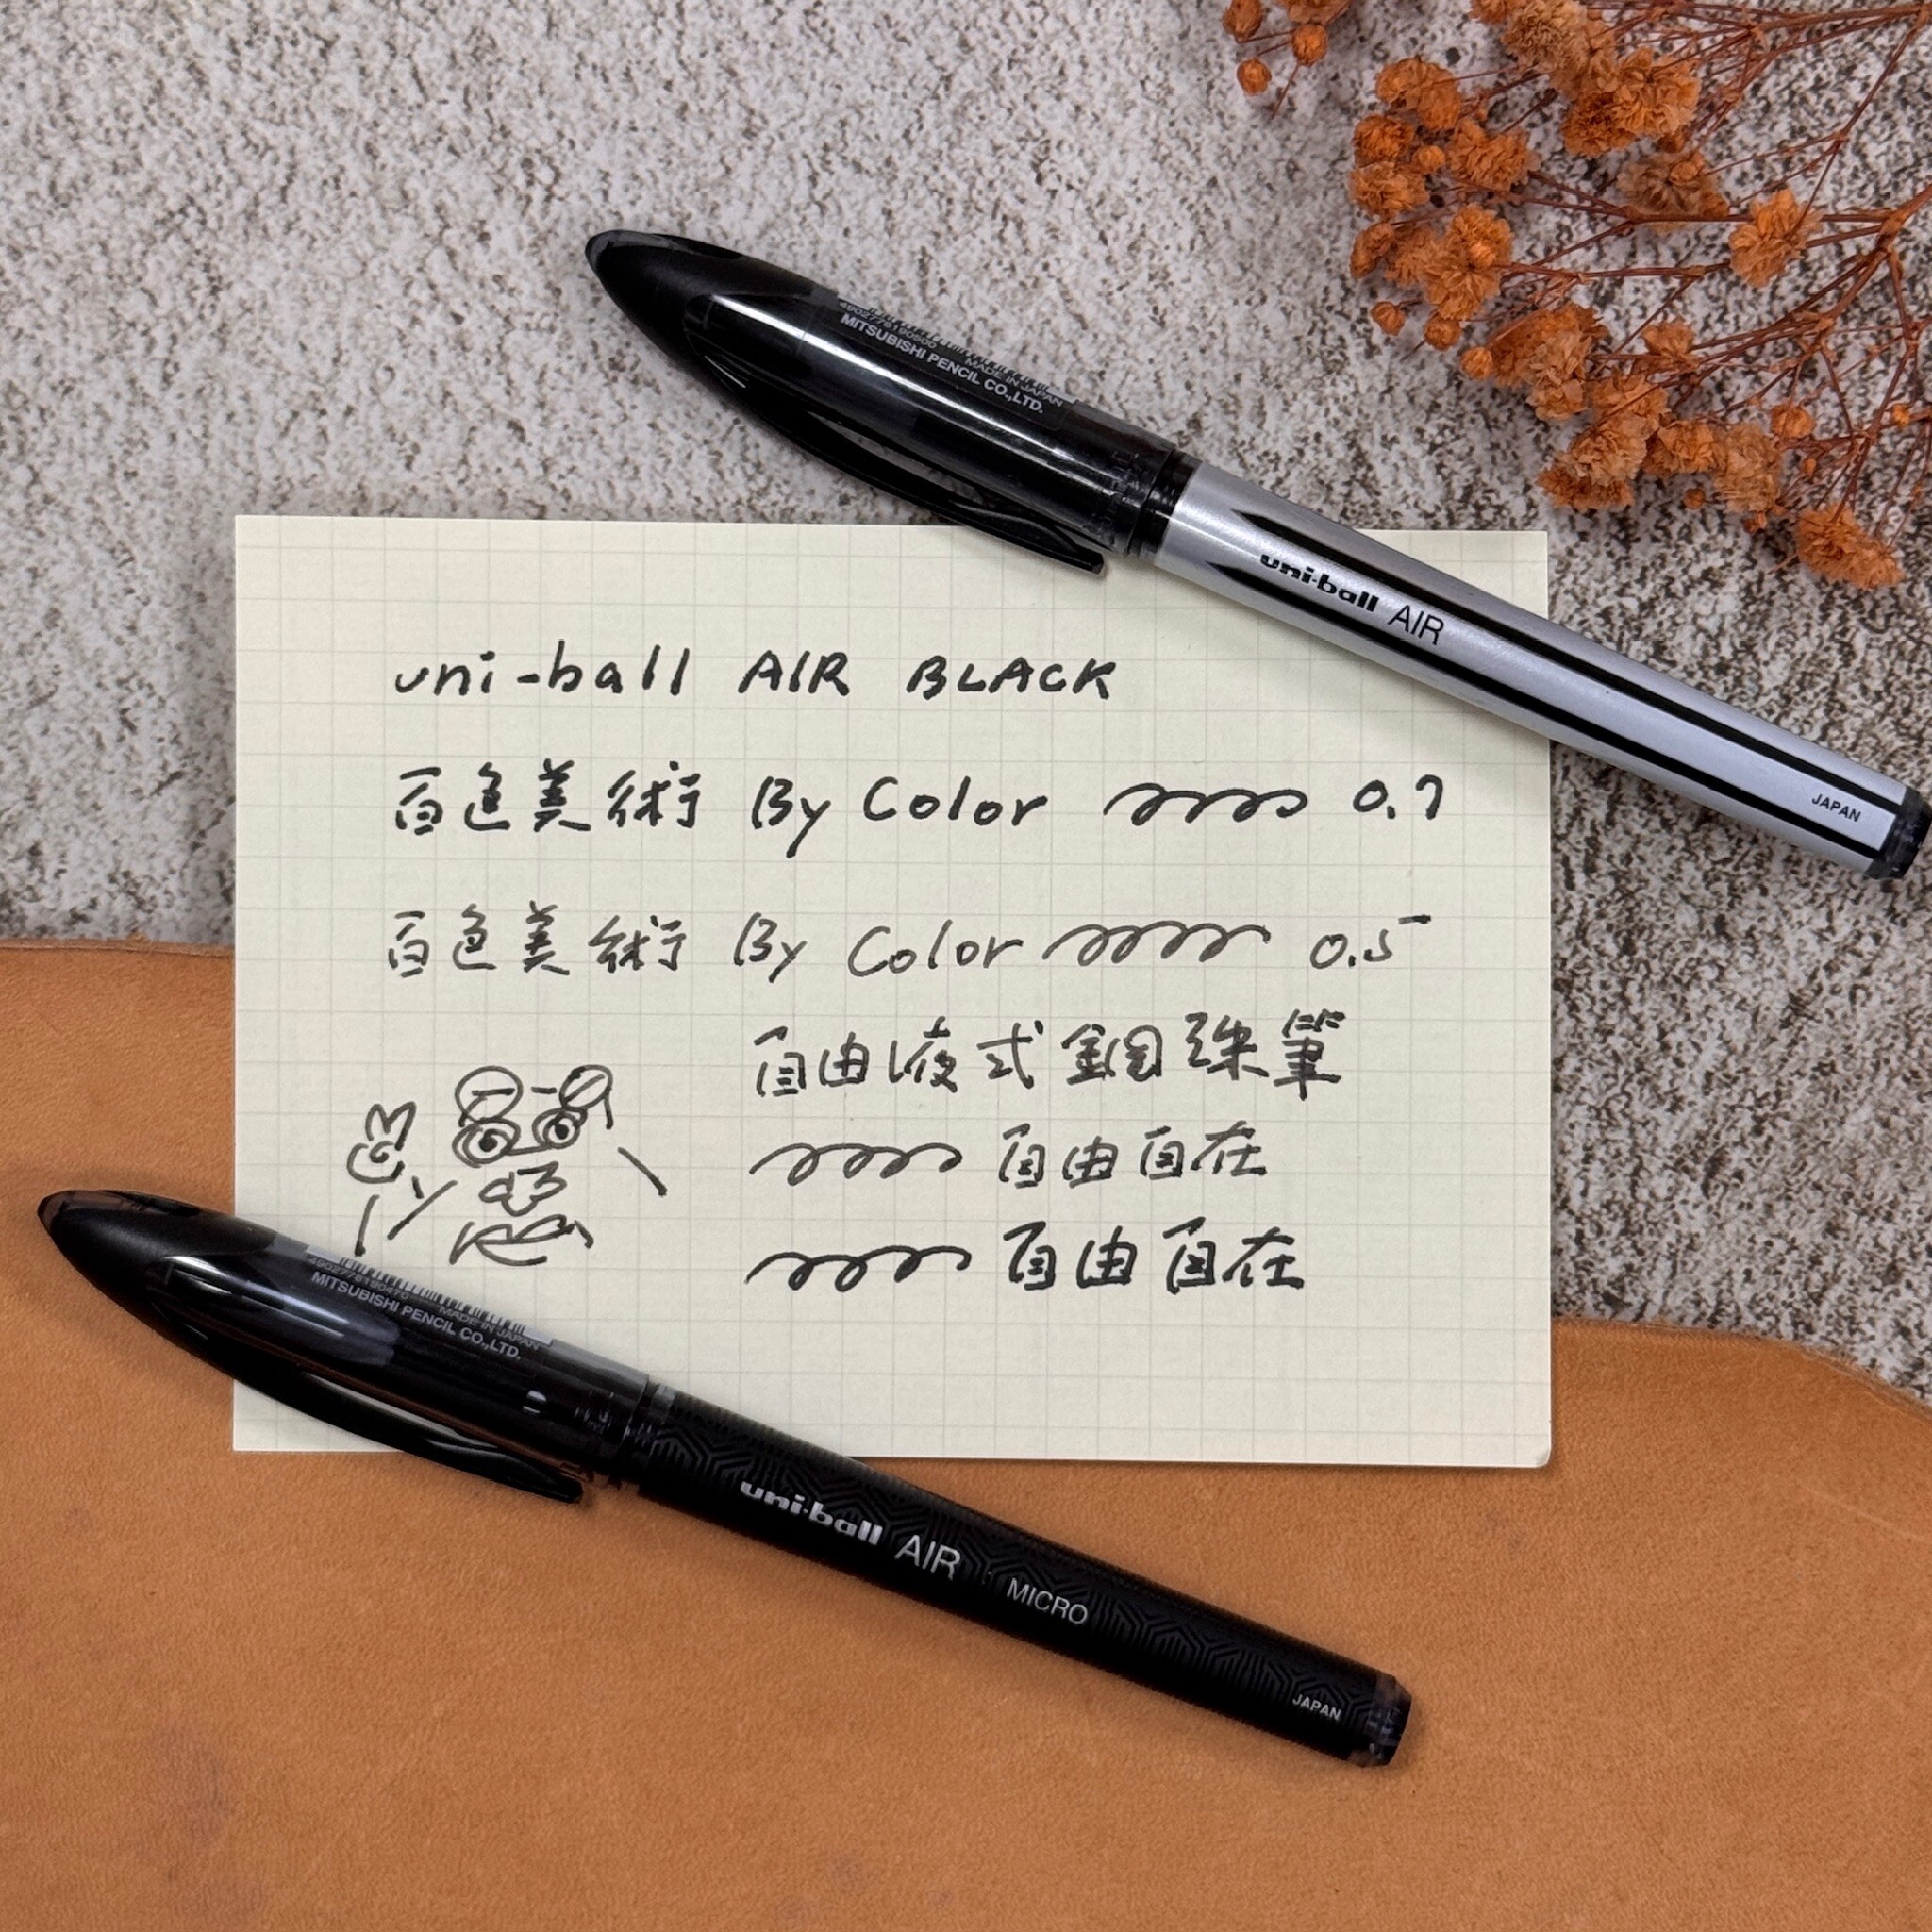 MADE IN JAPAN
MITSUBISHI PENCIL CO.,LTD.
uni-ball AIR
JAPAN
uni-ball AIR BLACK
百色美術 By Color 0.7
百色美術 By Color 0.5
自由液式鋼珠筆
自由自在
自由自在
MADE IN JAPAN
MITSUBISHI PENCIL CO.,LTD.
uni-ball AIR MICRO
JAPAN